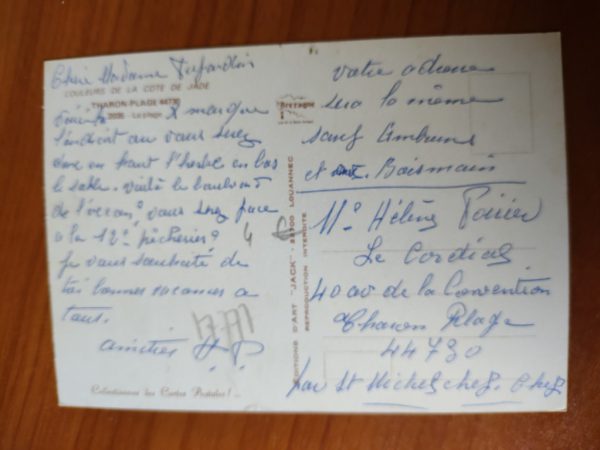 Chère Madame Dujardin
COULEURS DE LA COTE DE JADE
THARON-PLAGE 44730
La plage
X marque
l'endroit ou vous serez
en haut l'herbe en bas
le sable. voilà le boulevard
de l'océan? vous serez face
a la 12e pêcheries?
Je vous souhaite de
bonnes vacances a
tous.
amitiés H.P.
Collectionnez les Cartes Postales!...
Bretagne
4
EDITIONS D'ART "JACK" - LOUANNEC
REPRODUCTION INTERDITE
votre adresse
sera la même
sauf
et
Mle Hélène Poirier
Le Cordial
40 av de la Convention
Tharon Plage
44730
par St Michel chef. Chef